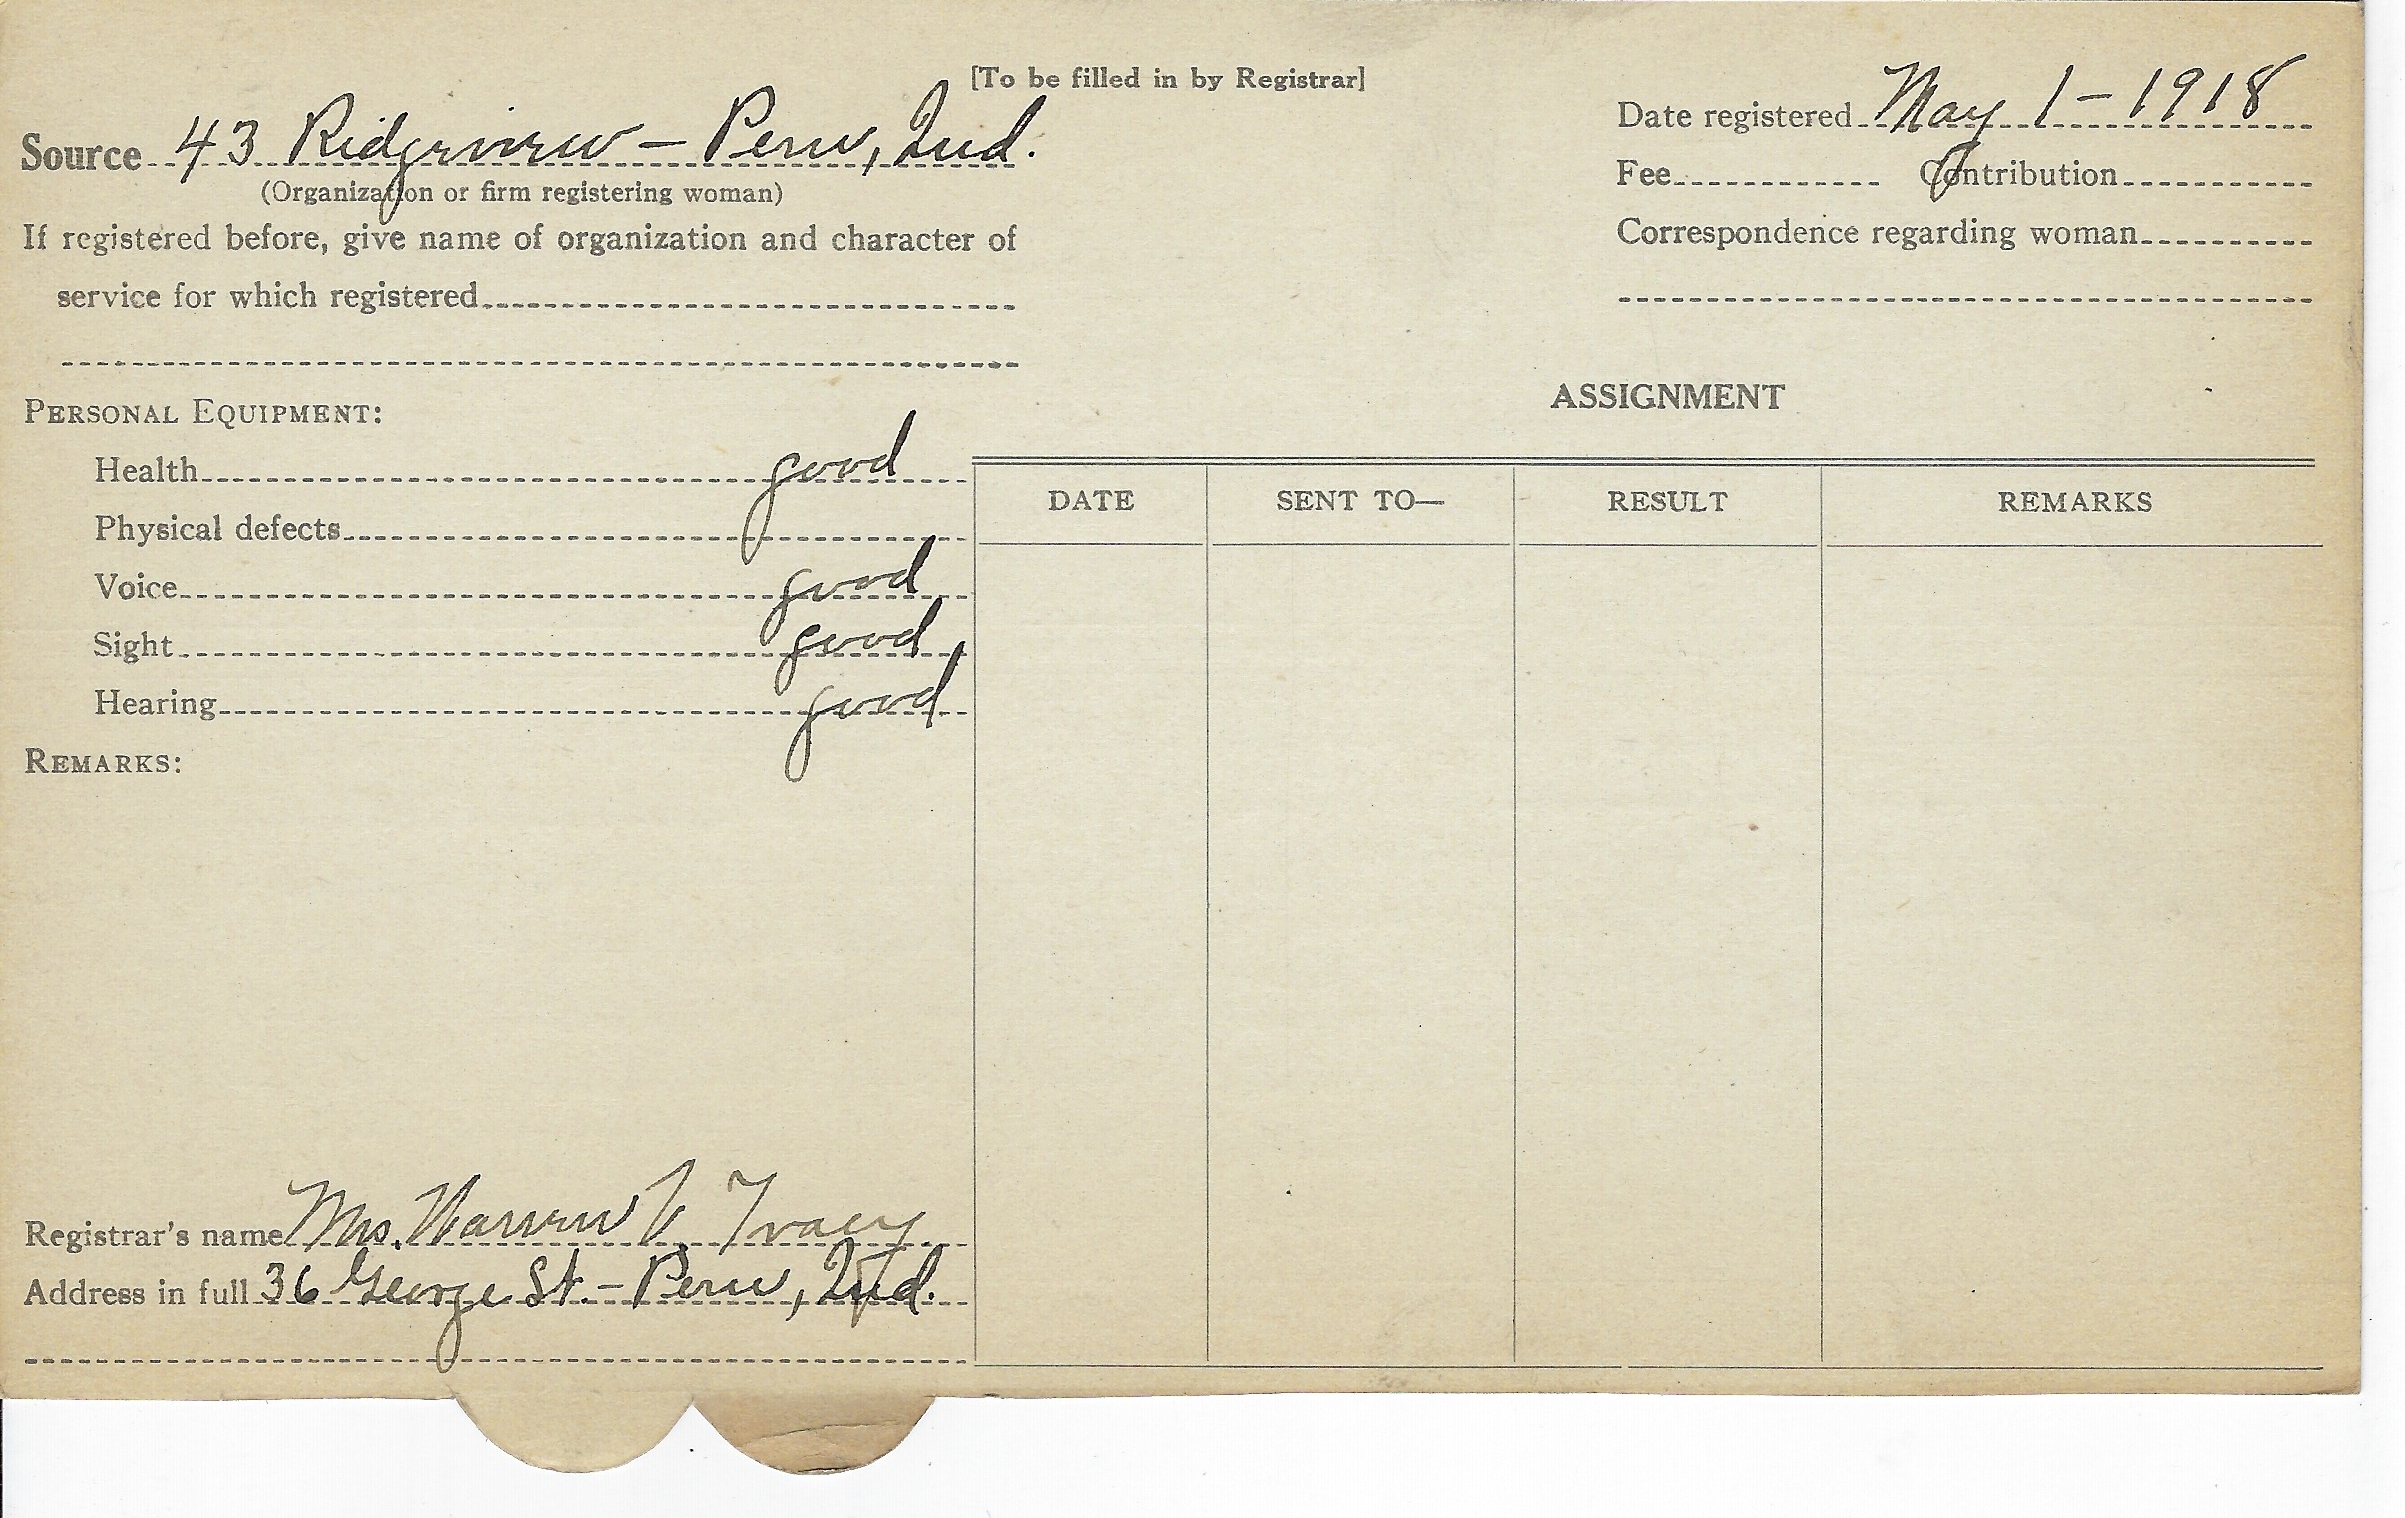 [To be filled in by Registrar]
Source 43 Ridgeview - Peru, Ind.
(Organization or firm registering woman)
If registered before, give name of organization and character of
service for which registered
Date registered May 1-1918
Fee Contribution
Correspondence regarding woman
PERSONAL EQUIPMENT:
Health good
Physical defects
Voice good
Sight good
Hearing good
REMARKS:
Registrar's name Mrs. Warren Tracy
Address in full 36 George St. - Peru, Ind.
ASSIGNMENT
DATE SENT TO— RESULT REMARKS